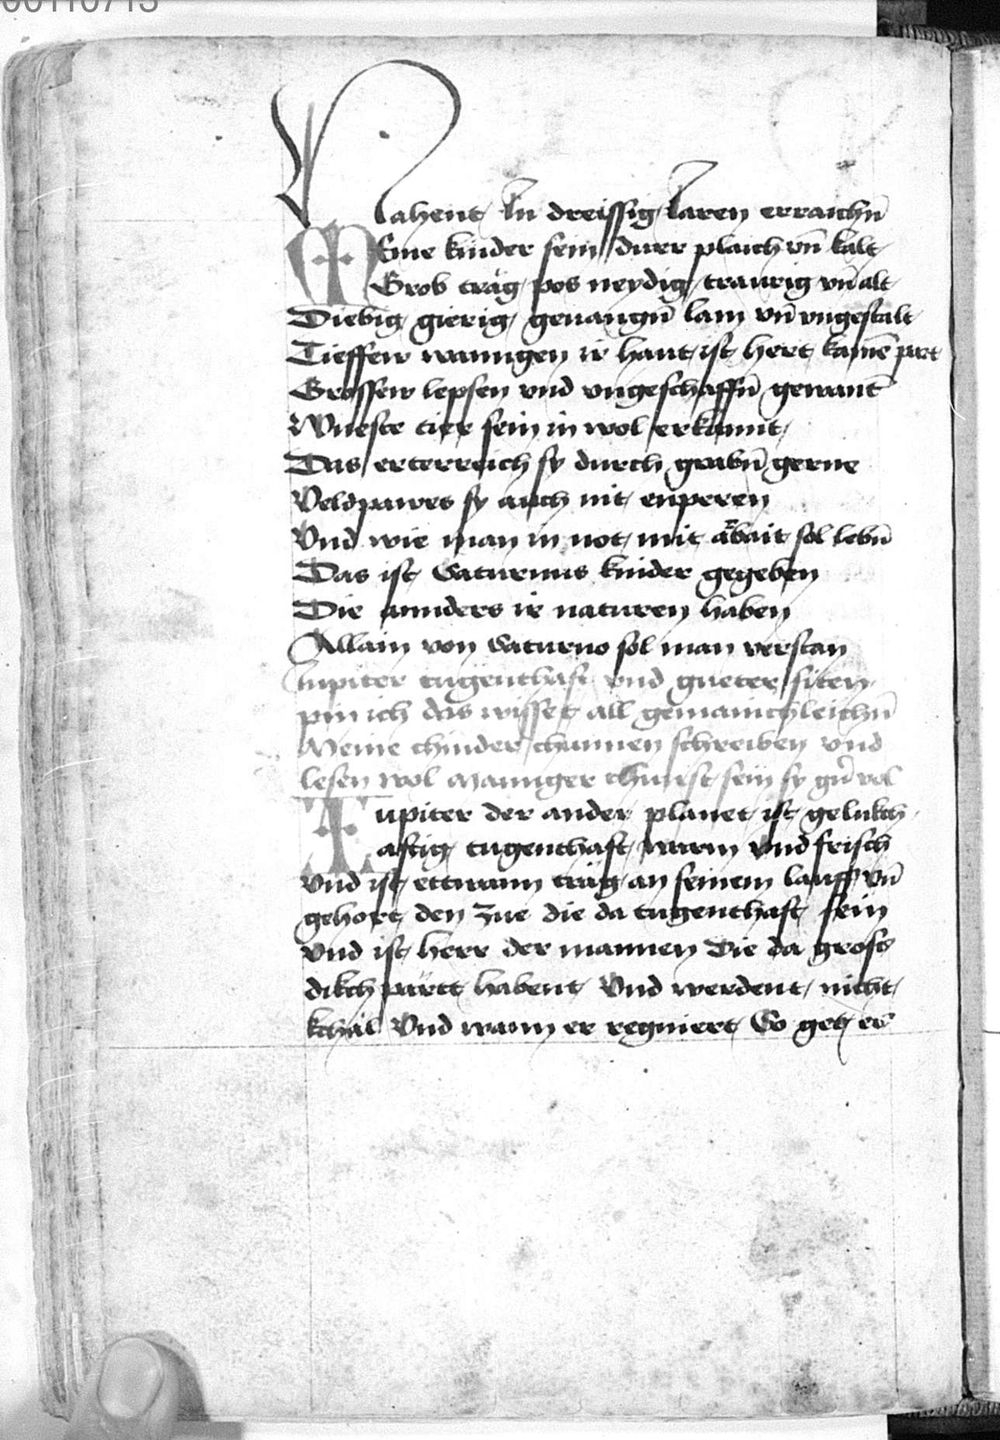 00110713
Nahent In dreissig Iaren erraichn̄
Meine kinder sein / durr plaich vn̄ kalt
Grob träg pos neydig traurig vn̄ alt
Diebig gierig geuangn̄ lam vn̄ vngestalt
Tieffew wanngen ir haut ist hert kainē part
Grossew lepsen vnd vngeschaffn̄ gewant
Wueste tier sein in wol erkannt
Das erterreich sy durch grabn̄ gerne
Veldpawes sy auch nit enperen
Vnd wie man in not mit arbait sol lebn̄
Das ist Saturnus kinder gegeben
Die annders ir naturen haben
Allain von Saturno sol man verstan
Iupiter tugenthaft vnd gueter siten
pin ich das wisset all gemainchleichn̄
Meine chinder chunnen schreiben vnd
lesen wol Maniger chunst sein sy gar vol
Iupiter der ander planet ist gelukch
aftig tugenthaft warm vnd frisch
Vnd ist ettwann träg an seinem lauff vn̄
gehort den zue die da tugenthaft sein
Vnd ist herr der mannen Die da gross
dikch pärtt habent Vnd werdent nicht
kchal Vnd wann er regniert So get es